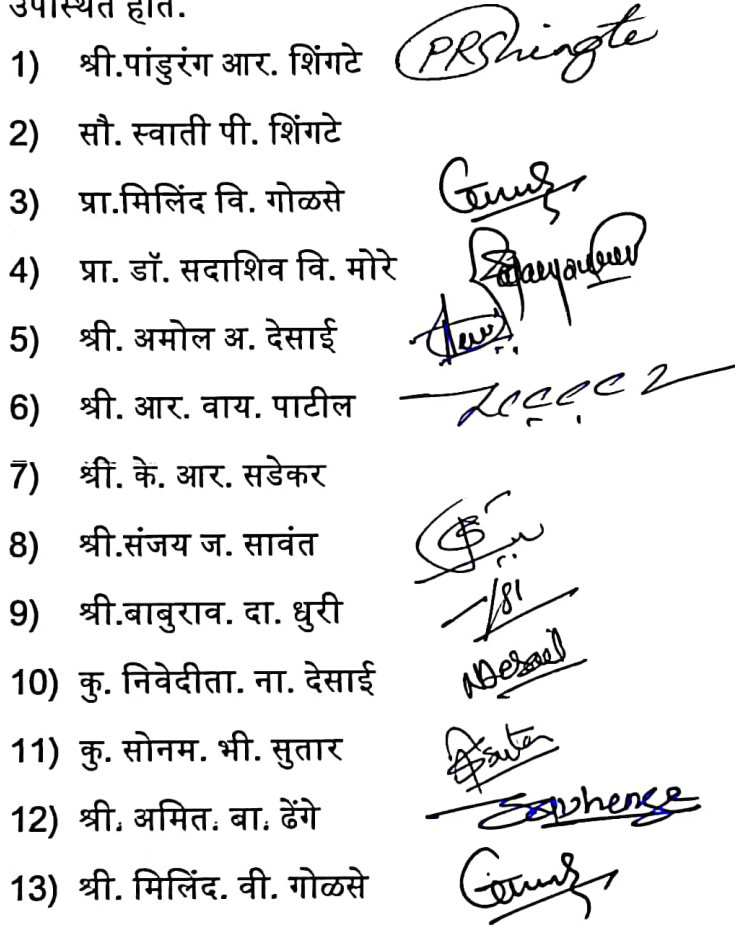 उपस्थित होते.
1) श्री.पांडुरंग आर. शिंगटे PRShingte
2) सौ. स्वाती पी. शिंगटे
3) प्रा.मिलिंद वि. गोळसे
4) प्रा. डॉ. सदाशिव वि. मोरे
5) श्री. अमोल अ. देसाई
6) श्री. आर. वाय. पाटील
7) श्री. के. आर. सडेकर
8) श्री.संजय ज. सावंत
9) श्री.बाबुराव. दा. धुरी
10) कु. निवेदीता. ना. देसाई NDesai
11) कु. सोनम. भी. सुतार
12) श्री. अमित. बा. ढेंगे
13) श्री. मिलिंद. वी. गोळसे